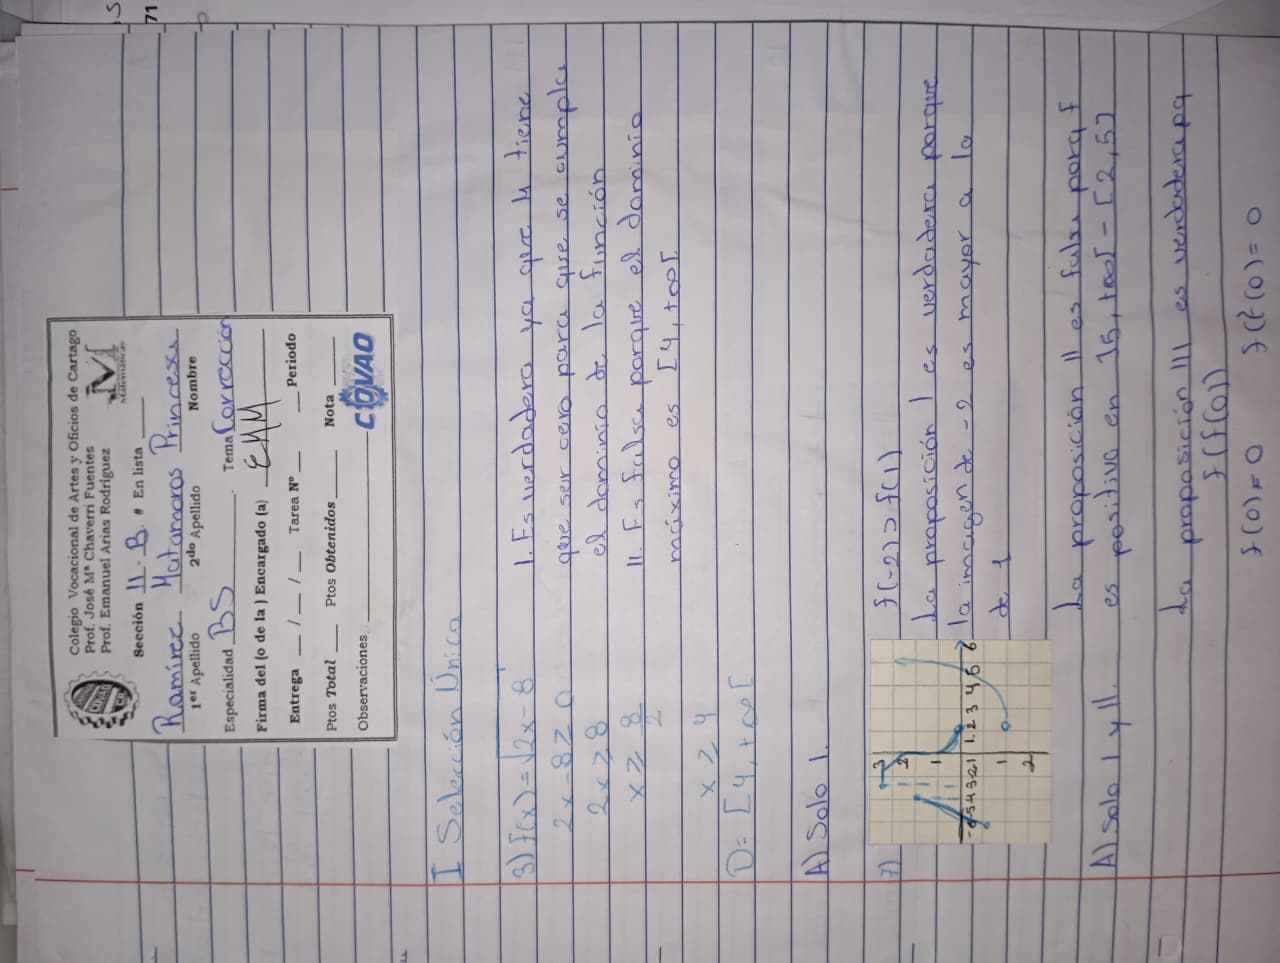 71
Colegio Vocacional de Artes y Oficios de Cartago
Prof. José Mª Chaverri Fuentes
Prof. Emanuel Arias Rodríguez
Matemáticas
Sección 11-B. # En lista ____
Ramírez Matamoros Princesa
1er Apellido 2do Apellido Nombre
Especialidad BS Tema Corrección
Firma del (o de la ) Encargado (a) EMM
Entrega ___ / ___ / ___ Tarea N° ___ ___ Periodo
Ptos Total ____ Ptos Obtenidos ____ Nota ____
Observaciones ____ COVAO
I Selección Única
3) f(x) = √2x-8
2x-8≥0
2x≥8
x≥ 8/2
x≥4
D= [4,+∞[
I. Es verdadera ya que 4 tiene
que ser cero para que se cumpla
el dominio de la función
II. Es falsa porque el dominio
máximo es [4,+∞[
A) Solo I.
7)
3
2
1
-6-5-4-3-2-1 1 2 3 4 5 6
1
2
f(-2) > f(1)
La proposición I es verdadera porque
la imagen de -2 es mayor a la
de 1
La proposición II es falsa porq f
es positiva en ]5,+∞[ - [2,5]
A) Solo I y II.
La proposición III es verdadera pq
f(f(0))
f(0)=0 f(f(0)=0